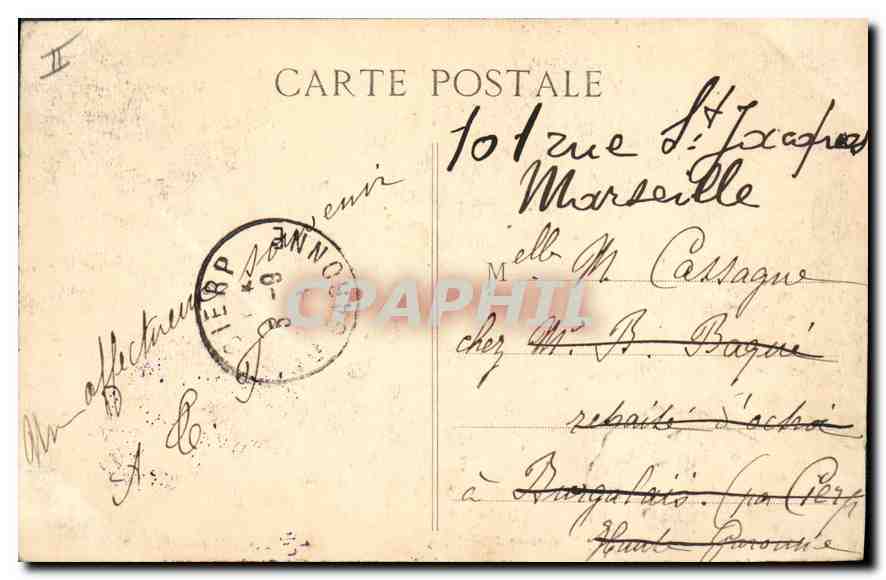 II
CARTE POSTALE
101 rue St. Jacques
Marseille
Melle M Cassagne
chez Mr. B. Baqué
retraité d'octroi
à Burgalais. (par Cierp
Haute Garonne
Un affectueux souvenir
A C.
CIERP
8 -9
GARONNE
CPAPHIL